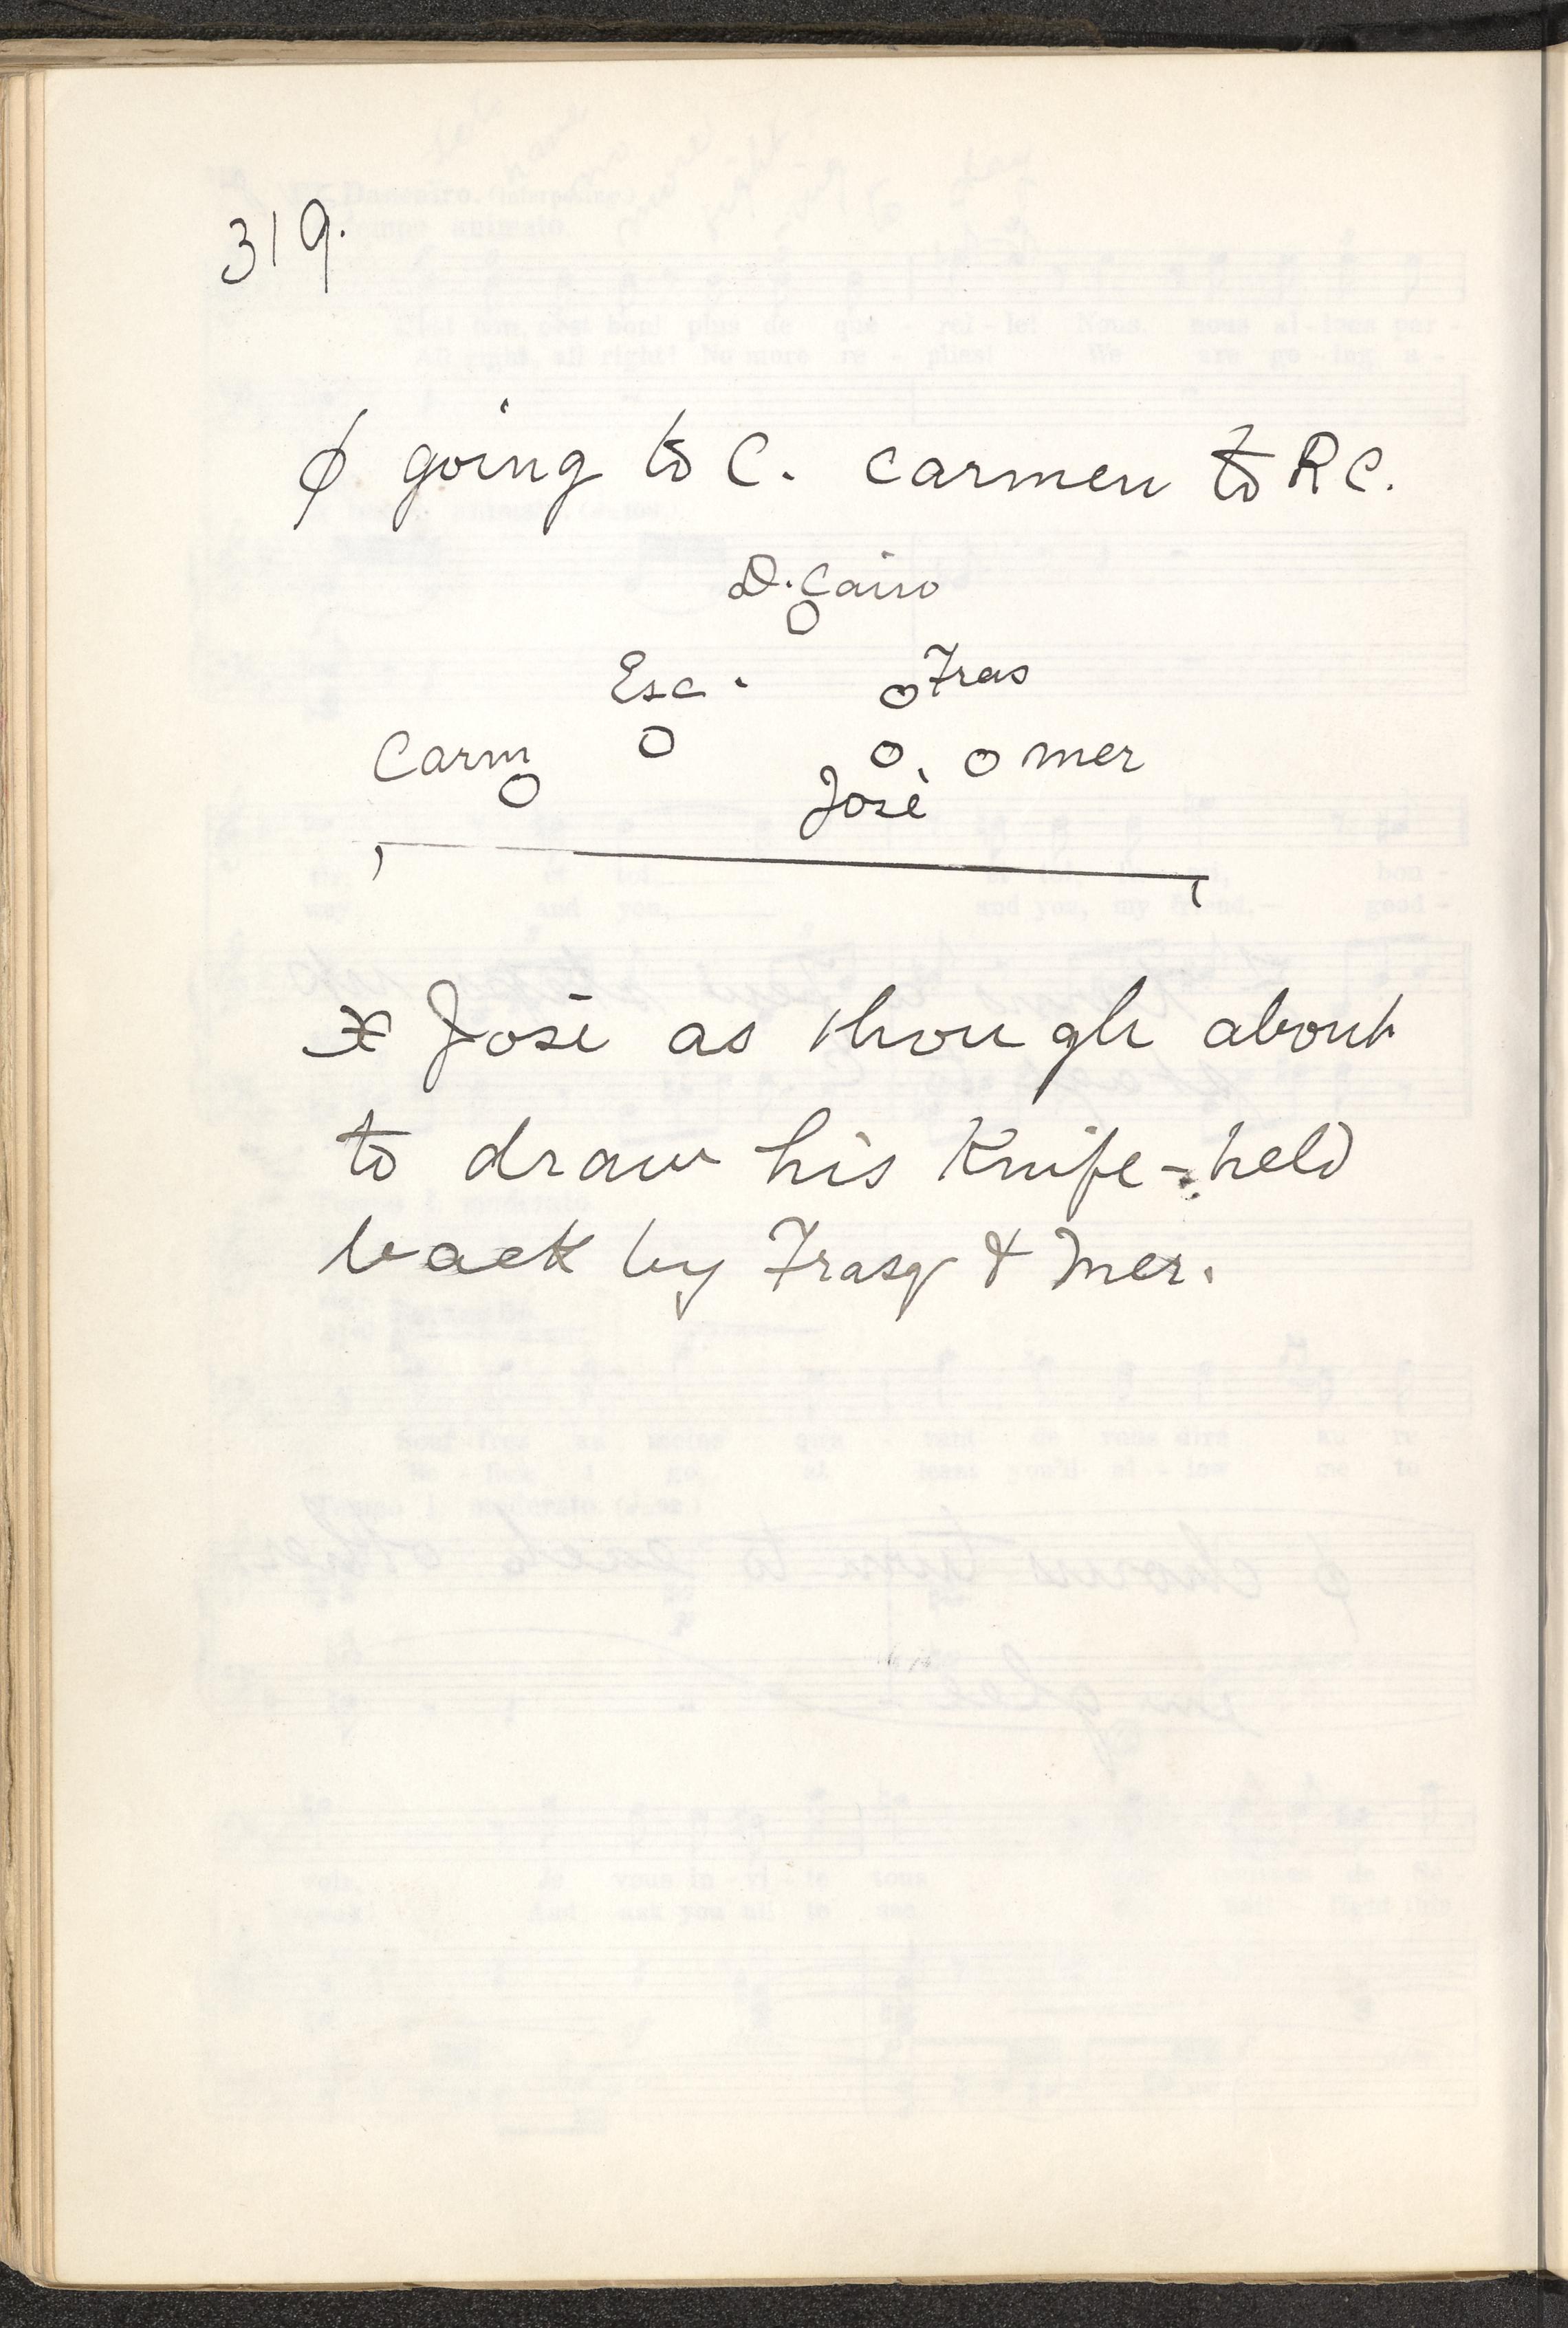 319.
ϕ going to C. Carmen to R C.
D. Cairo
Esc. Fras
Carm mer
José
x José as though about
to draw his Knife - held
back by Frasq & Mer.